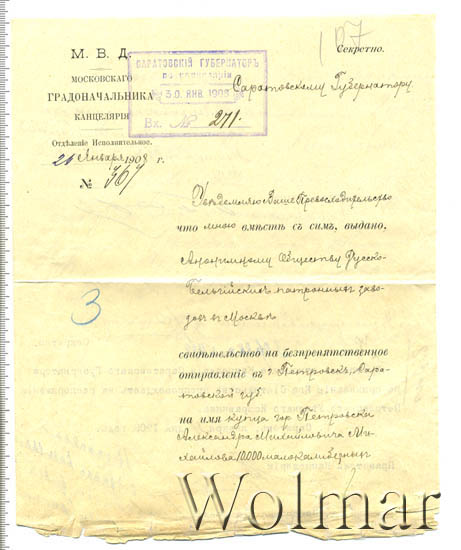 107
М. В. Д.
Секретно.
МОСКОВСКАГО
ГРАДОНАЧАЛЬНИКА
КАНЦЕЛЯРІЯ
Отдѣленіе Исполнительное.
САРАТОВСКІЙ ГУБЕРНАТОРЪ
по канцеляріи
30. ЯНВ. 1908
Вх. № 271.
Саратовскому Губернатору.
Января 1908 г.
№ 367
Увѣдомляю Ваше Превосходительство
что мною вмѣстѣ съ симъ, выдано,
Анонимному Обществу Русско-
Бельгійскихъ патронныхъ заво-
довъ въ Москвѣ
3
свидѣтельство на безпрепятственное
отправленіе въ г. Петровскъ, Сара-
товской губ.
на имя купца гор. Петровска
Александра Михайловича Ми-
хайлова 10.000 малокалиберныхъ
Wolmar